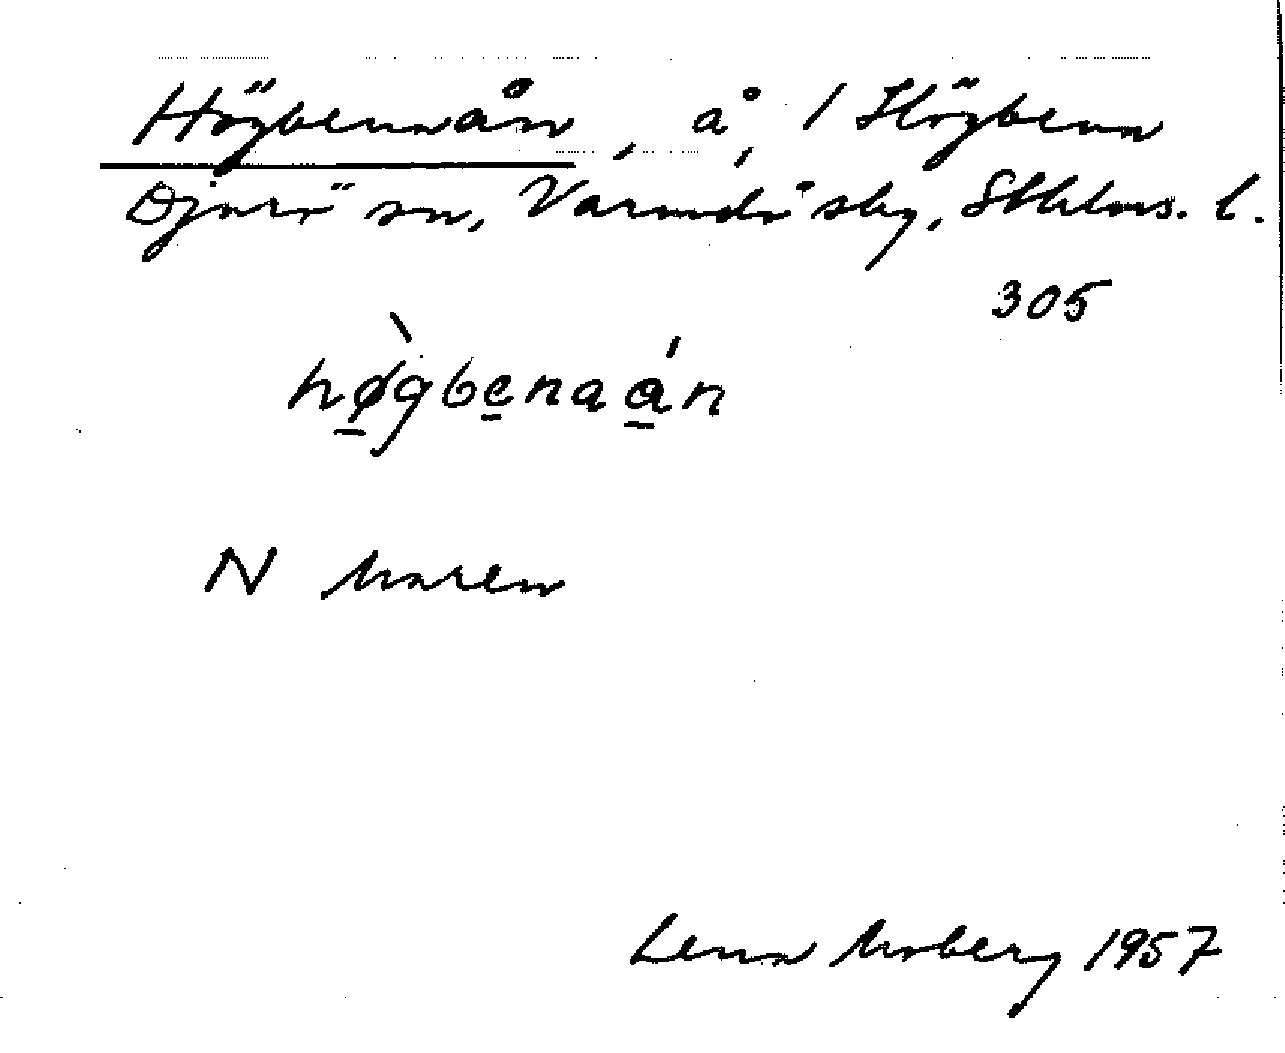 Högbennaån, å, / Högbenna
Djurö sn, Värmdö sbg, Sthlms. l.
305
hø̀gbenaán
N Maren
Lena Moberg 1957